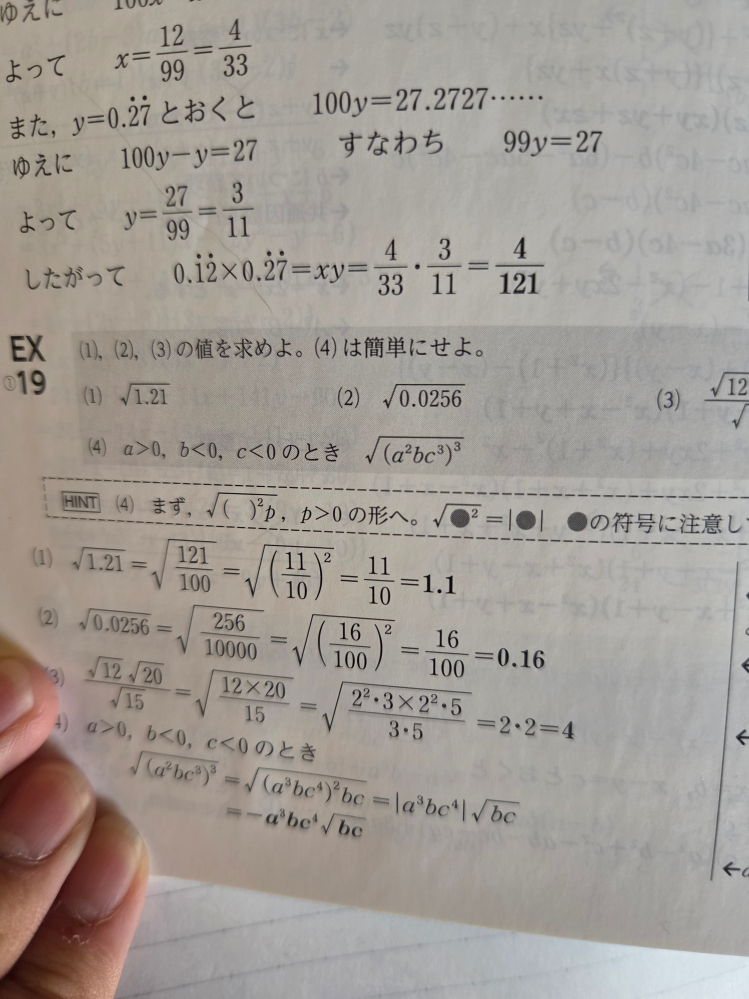 ゆえに 100x
よって x=12/99=4/33
また, y=0.2̇7̇とおくと 100y=27.2727……
ゆえに 100y−y=27 すなわち 99y=27
よって y=27/99=3/11
したがって 0.1̇2̇×0.2̇7̇=xy=4/33・3/11=4/121
EX ①19 (1), (2), (3)の値を求めよ。(4)は簡単にせよ。
(1) √1.21 (2) √0.0256 (3) √12
(4) a>0, b<0, c<0のとき √(a²bc³)³
HINT (4) まず, √( )²p, p>0の形へ。√●²=|●| ●の符号に注意し
(1) √1.21=√(121/100)=√((11/10)²)=11/10=1.1
(2) √0.0256=√(256/10000)=√((16/100)²)=16/100=0.16
3) √12√20/√15=√(12×20/15)=√(2²・3×2²・5/3・5)=2・2=4
4) a>0, b<0, c<0のとき
√(a²bc³)³=√(a³bc⁴)²bc=|a³bc⁴|√bc
=−a³bc⁴√bc